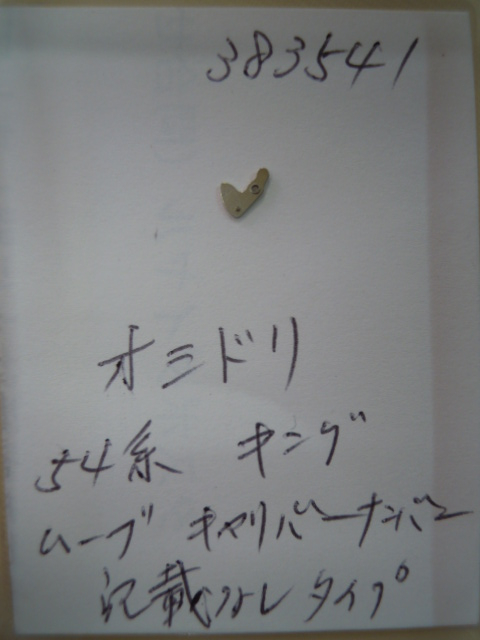 383541
オシドリ
54系 キング
ムーブ キャリバーナンバー
記載なしタイプ